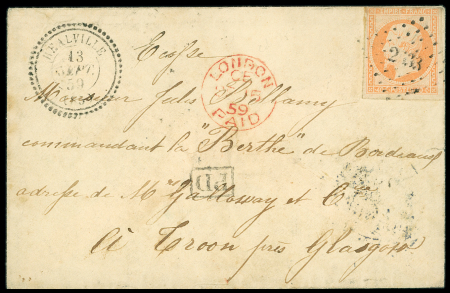 REALVILLE
13
SEPT.
59
LONDON
59
PAID
Ecosse
Monsieur Jules Bellamy
commandant la "Berthe" de Bordeaux
adresse de M "Galloway et C
PD
à Troon près Glasgow